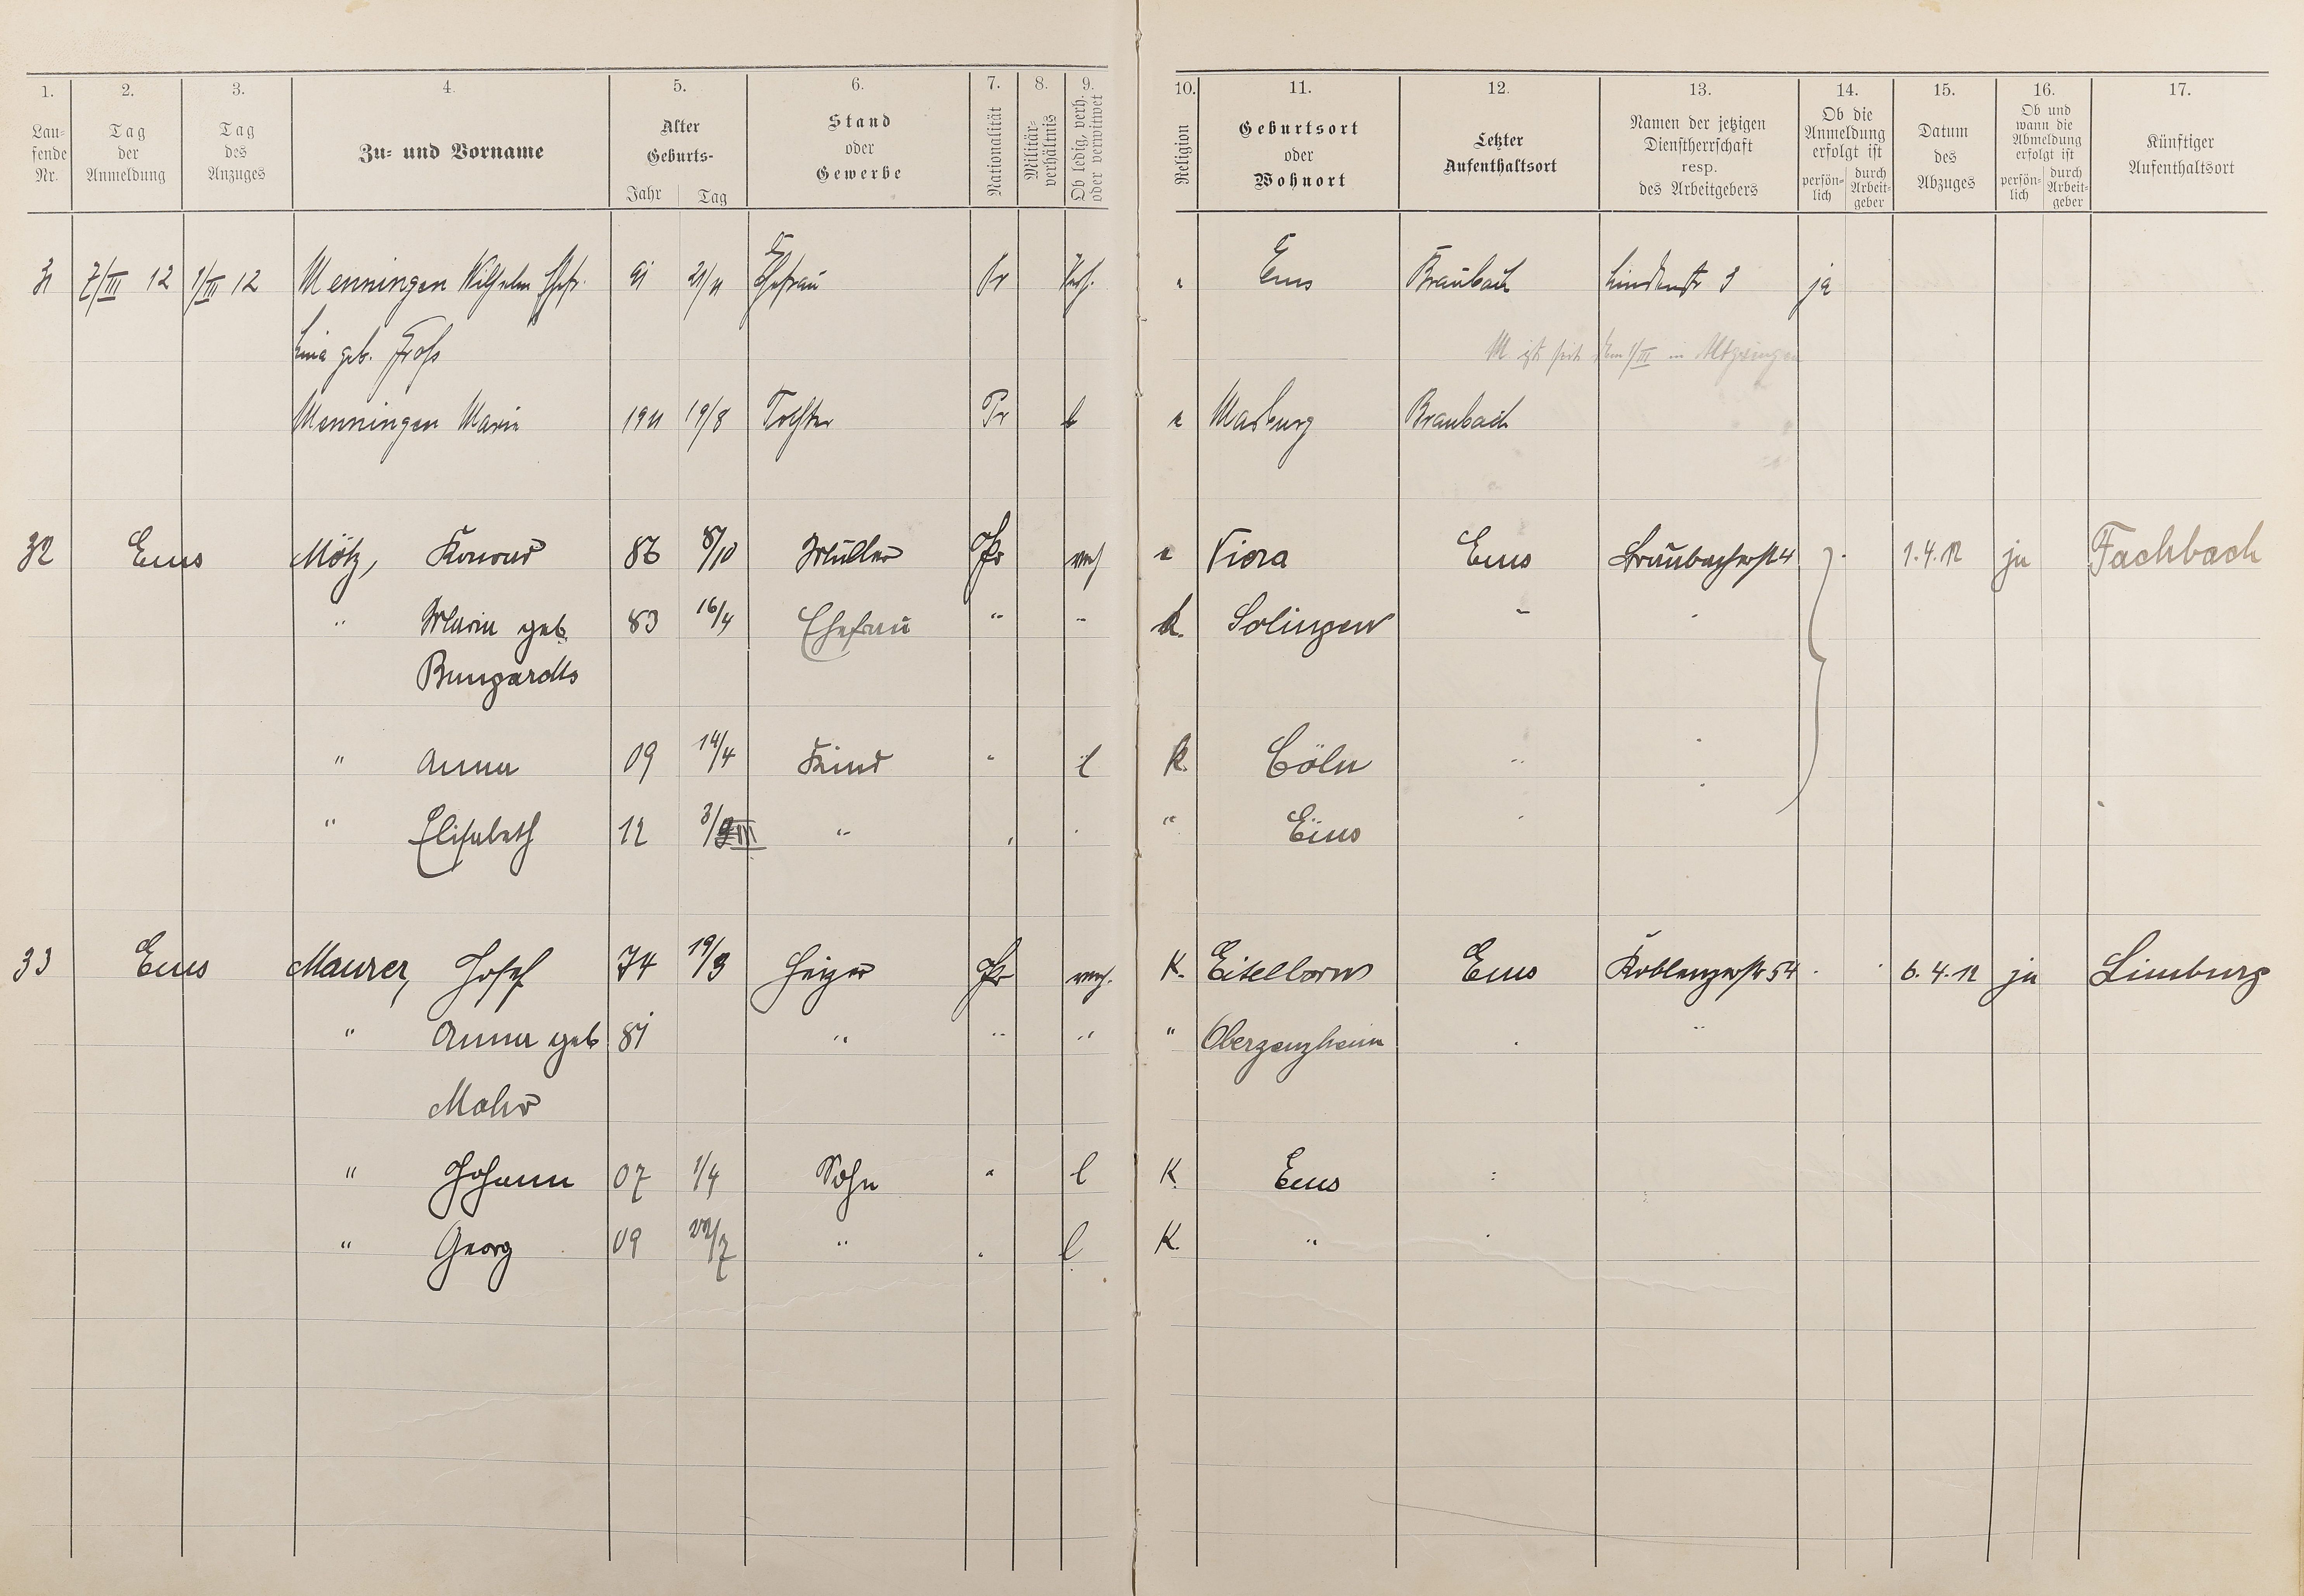 1. 2. 3. 4. 5. 6. 7. 8. 9. 10. 11. 12. 13. 14. 15. 16. 17.
Laufende Nr.
Tag der Anmeldung
Tag des Anzuges
Zu- und Vorname
Alter Geburts- Jahr Tag
Stand oder Gewerbe
Nationalität
Militär-verhältnis
Ob ledig, verh. oder verwitwet
Religion
Geburtsort oder Wohnort
Letzter Aufenthaltsort
Namen der jetzigen Dienstherrschaft resp. des Arbeitgebers
Ob die Anmeldung erfolgt ist persön-lich durch Arbeit-geber
Datum des Abzuges
Ob und wann die Abmeldung erfolgt ist persön-lich durch Arbeit-geber
Künftiger Aufenthaltsort
31 7/III 12 1/III 12 Menningen Wilhelm Ehefr. 91 21/11 Ehefrau Pr Verh. " Ems Braubach Lindenstr 3 ja
Lina geb. Groß M ist seit dem 1/III in
Menningen Maria 1911 19/8 Tochter Pr l e Braubach
32 Ems Mötz, Konrad 86 8/10 Müller Pr verh e Ems Braubacherstr 4 1.4.12 ja Fachbach
" Maria geb 83 16/4 Ehefrau " " k. Solingen " "
Bungardts
" Anna 09 14/4 Kind " l k. Cöln " "
" Elisabeth 12 3/III " " " " Ems "
33 Ems Maurer, Josef 74 19/3 Heizer Pr verh. K. Eitelborn Ems Koblenzerstr 54 6.4.12 ja Limburg
" Anna geb 81 " " " " Oberzeuzheim " "
Mohr
" Johann 07 1/4 Sohn " l K. Ems "
" Georg 09 22/7 " " l K. " "